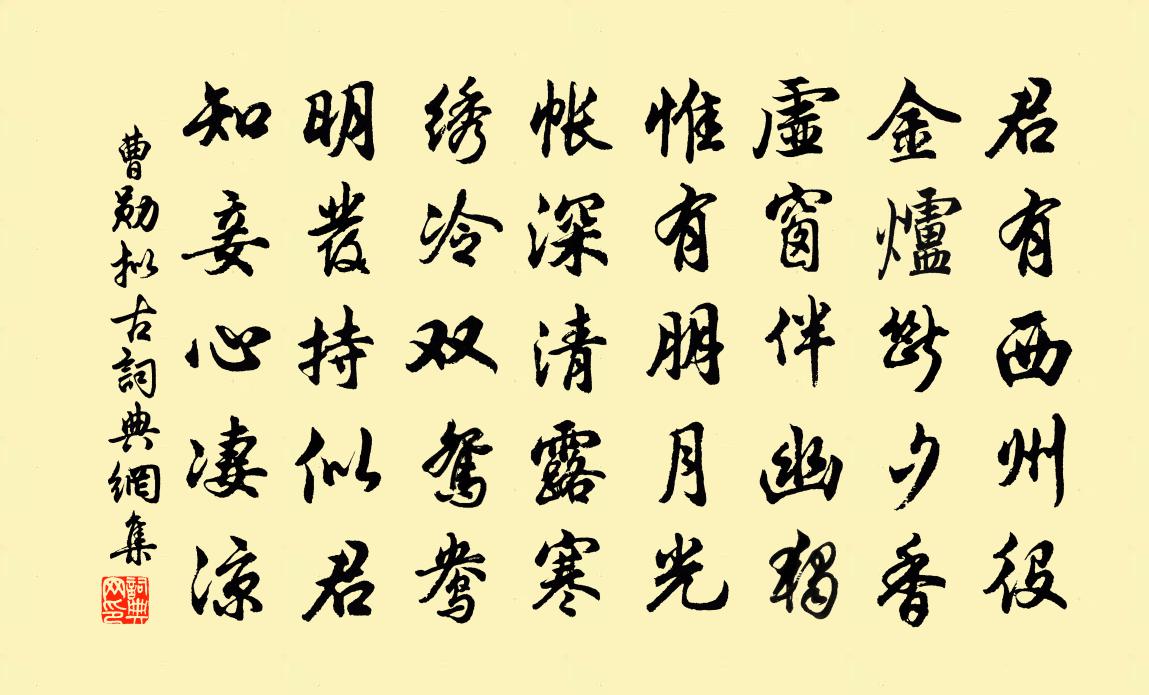 君有西州役
金爐斷夕香
虛窗伴幽獨
惟有朋月光
帳深清露寒
绣冷双鴛鴦
明發持似君
知妾心凄涼
曹勋拟古詞典網集
詞典網印